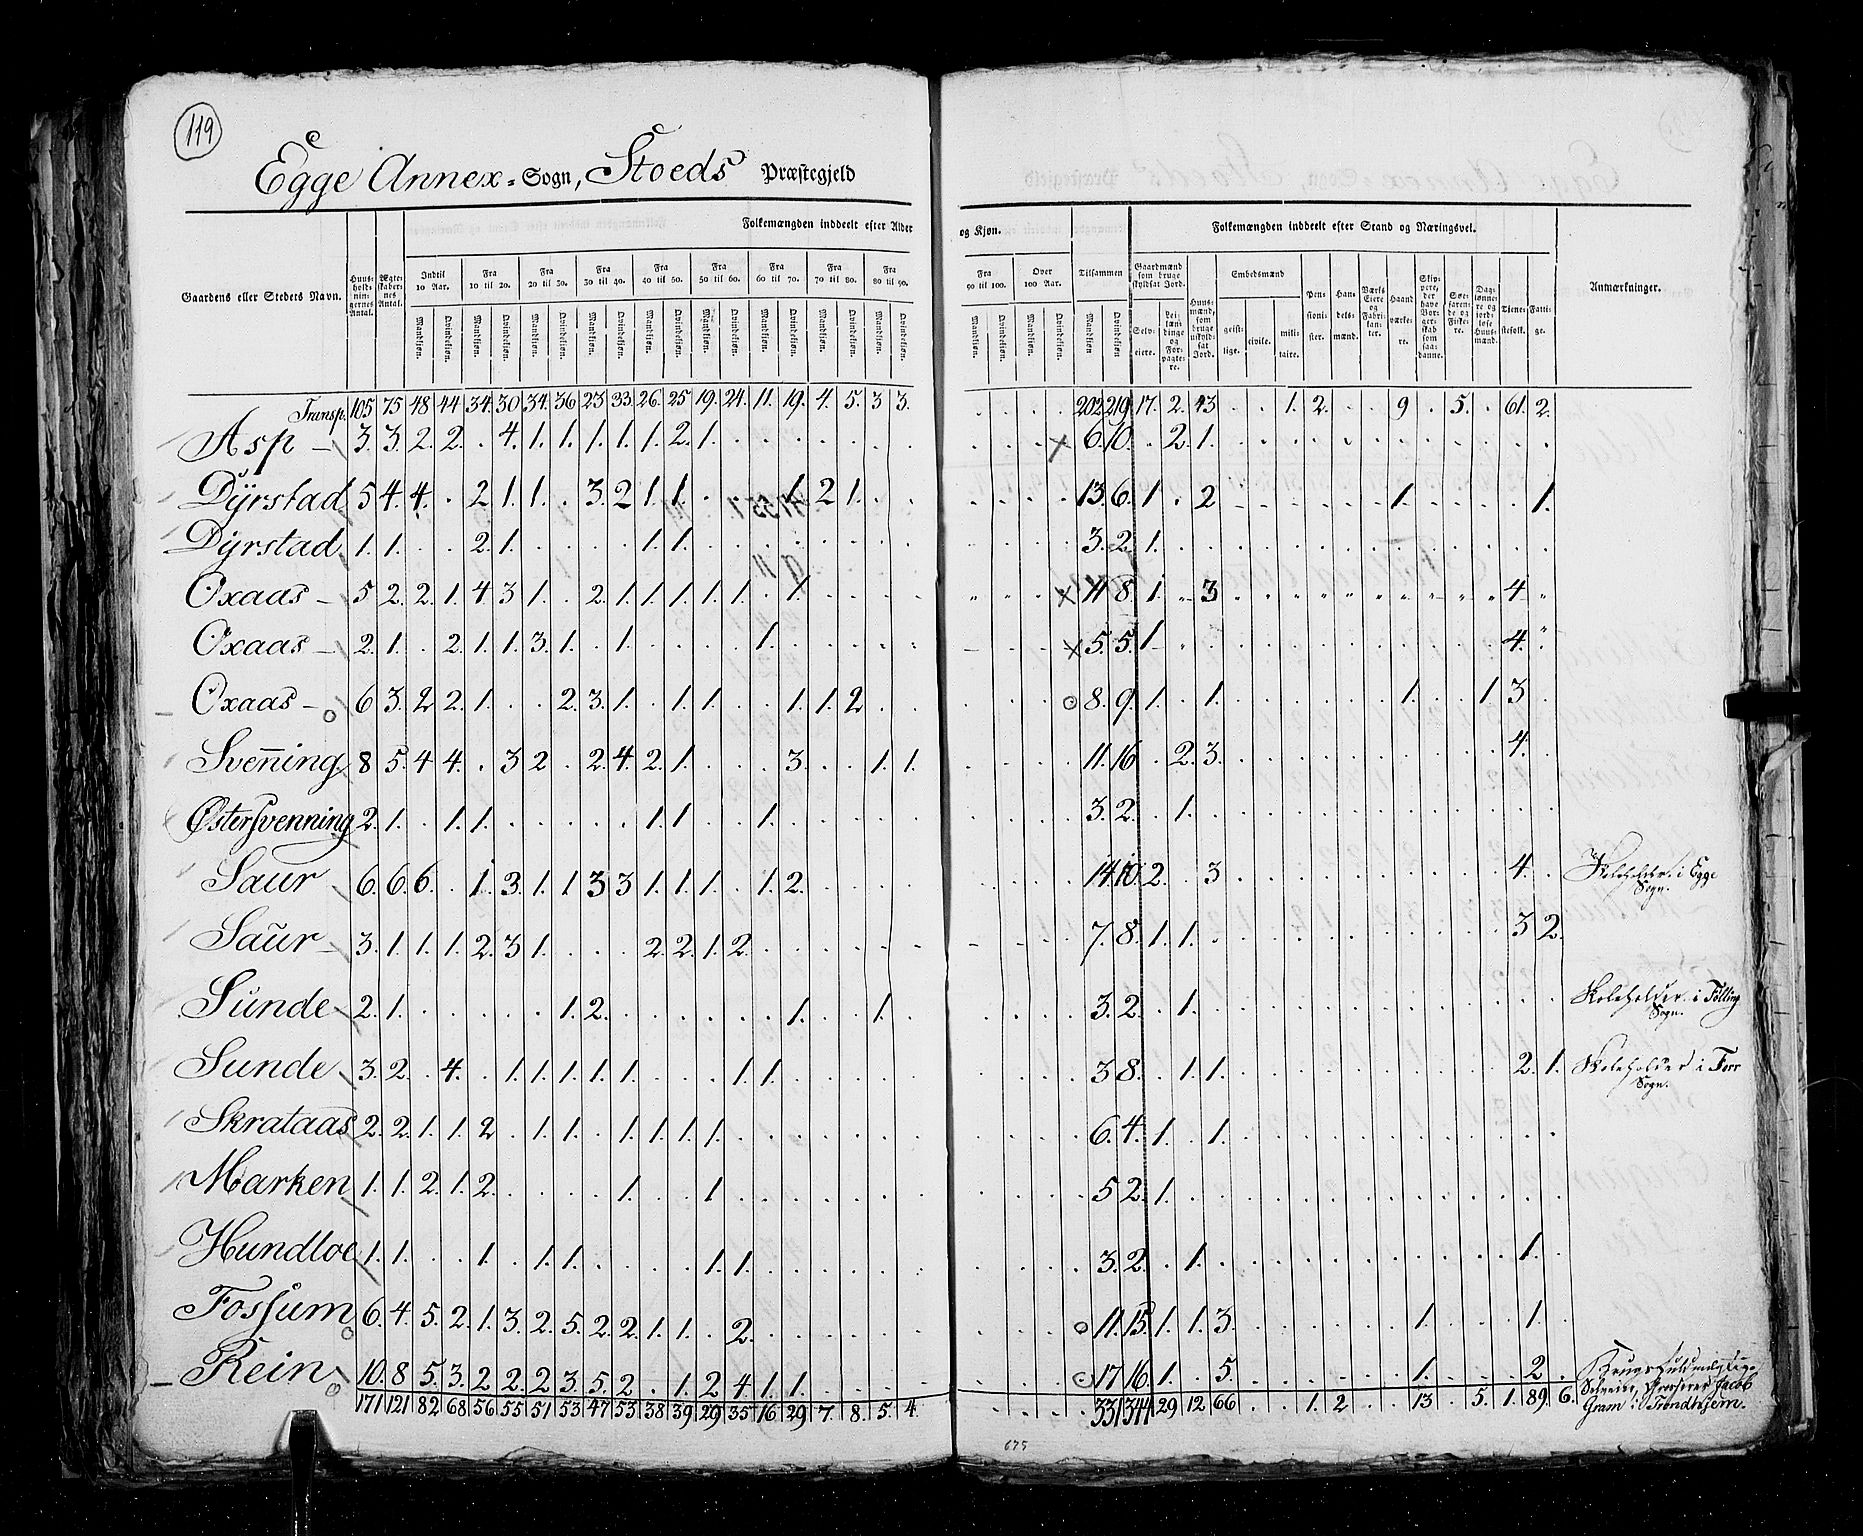 119
Egge Annex-Sogn, Stoeds Præstegjeld
Folkemængden inddeelt efter Alder og Kjøn. Folkemængden inddeelt efter Stand og Næringsvei.
Gaardens eller Stedets Navn. Huusholdningernes Antal. Ægteskabernes Antal. Indtil 10 Aar. Fra 10 til 20. Fra 20 til 30. Fra 30 til 40. Fra 40 til 50. Fra 50 til 60. Fra 60 til 70. Fra 70 til 80. Fra 80 til 90. Fra 90 til 100. Over 100 Aar. Tilsammen Gaardmænd som bruge skyldsat Jord. Huusmænd, som bruge uskyldsat Jord. Embedsmænd Pensionister. Handelsmænd. Værks Eiere og Fabrikanter. Haandværkere. Skippere, der have Borgerskab som saadanne. Søefarende og Fiskere. Daglønnere og jordløse Huusmænd. Tjenestefolk. Fattige. Anmærkninger.
Mandkjøn. Qvindekjøn. Mandkjøn. Qvindekjøn. Mandkjøn. Qvindekjøn. Mandkjøn. Qvindekjøn. Mandkjøn. Qvindekjøn. Mandkjøn. Qvindekjøn. Mandkjøn. Qvindekjøn. Mandkjøn. Qvindekjøn. Mandkjøn. Qvindekjøn. Mandkjøn. Qvindekjøn. Mandkjøn. Qvindekjøn. Mandkjøn Qvindekjøn Selveiere. Leilændinge og Forpagtere. geistlige. civile. militaire.
Transp. 105 75 48 44 34. 30 34. 36 23 33. 26. 25 19. 24. 11. 19. 4. 5. 3 3. . . . . 202 219. 17. 2. 43 . . 1. 2. . . 9 . 5. . 61. 2.
Asp - 3. 3. 2. 2. . 4. 1. 1. 1. 1. 1. 2. 1. . . . . . . . . . . × 6. 10. . 2. 1. . . . . . . . . . . . .
Dÿrstad 5 4. 4. . 2 1. 1. . 3. 2 1. 1. . . . 1. 2 1. . . . . . . 13. 6. 1. . 2 . . . . . . 1. . . . . 1.
Dÿrstad 1. 1. . . 2. 1. . . . . 1. 1. . . . . . . . . . . . . 3. 2. 1. . . . . . . . . . . . . . .
Oxaas - 5 2. 2. 1. 4. 3 1. . 2. 1. 1. 1. 1. 1. . 1. . . . . " . . × 11 8. 1. " 3 . . . . " " " " " " 4 "
Oxaas - 2. 1. . 2. 1. 1. 3. 1. . 1. . . . . 1. . . . . . - . . × 5. 5. 1 . . . . . . . . . . . . 4. "
Oxaas - o 6 3. 2 2. 1. . . 2. 3. 1. . 1. 1. . . 1. 1. 2 . . . . . o 8. 9. 1. . 1. . . . . . . 1. . . 1 3 .
Svenning 8 5. 4 4. . 3 2 . 2. 4. 2. 1. . . . 3. . . 1. 1. . . . . 11. 16. . 2. 3. . . . . . . . . . . 4. .
Østersvenning 2. 1. . 1. 1. . . . . . 1. 1. . . 1. . . . . . . . . . 3. 2. . 1. . . . . . . . . . . . . .
Saur 6. 6. 6. . 1. 3. 1. 1 3 3 1. 1. 1. . 1. 2. . . . . . . . . 14. 10. 2. . 3 . . . . . . . . . . 4. . Skoleholder i Egge Sogn.
Saur - 3. 1. 1. 1. 2. 3 1. . . . 2. 2. 1. 2. . . . . . . . . . . 7. 8. 1. 1. . . . . . . . . . . . 3 2.
Sunde 2. 1. . . . . . 1. 2. . . . . . . 1. . . 1. . . . . . 3. 2. . 1. . . . . . . . . . . . . . Skoleholder i Følling Sogn.
Sunde 3. 2. . 4. . 1. 1. 1. 1. 1. . . . 1. 1. . . . . . . . . . 3 8. . 1. 1. . . . . . . . . . . 2. 1. Skoleholder i For Sogn.
Skrataas 2. 2. 1. 1. 2 . 1. 1. . 1. 1. 1. 1. . . . . . . . . . . . 6. 4. 1. . 1. . . . . . . . . . . . .
Marken 1. 1. 2. 1. 2. . . . . 1. . . 1. . . . . . . . . . . . 5 2. 1. . . . . . . . . . . . . . .
Hundloe 1. 1. . . 1. . 1. 1. . . . . 1. 1. . . . . . . . . . . 3. 2. . 1. . . . . . . . . . . . 1. .
Fossum o 6. 4. 5. 2. 1. 3. 2. 5. 2. 2. 1. 1. . 2. . . . . . . . . . o 11. 15. 1. 1. 3. . . . . . . 1. . . . 1. .
Rein o 10. 8 5. 3. 2 2. 2 3. 5. 2 . 1. 2 4. 1. 1. . . . . . . . o 17 16. 1. . 5. . . . . . . 1. . . . 2. .
171 121 82 68 56 55 51 53 47 53 38 39 29 35 16 29 7. 8. 5. 4. . . . . 331 344 29 12 66 . . 1. 2 . . 13 . 5. 1. 89. 6. Selveier, Jacob Gram i Trondhjem.
675